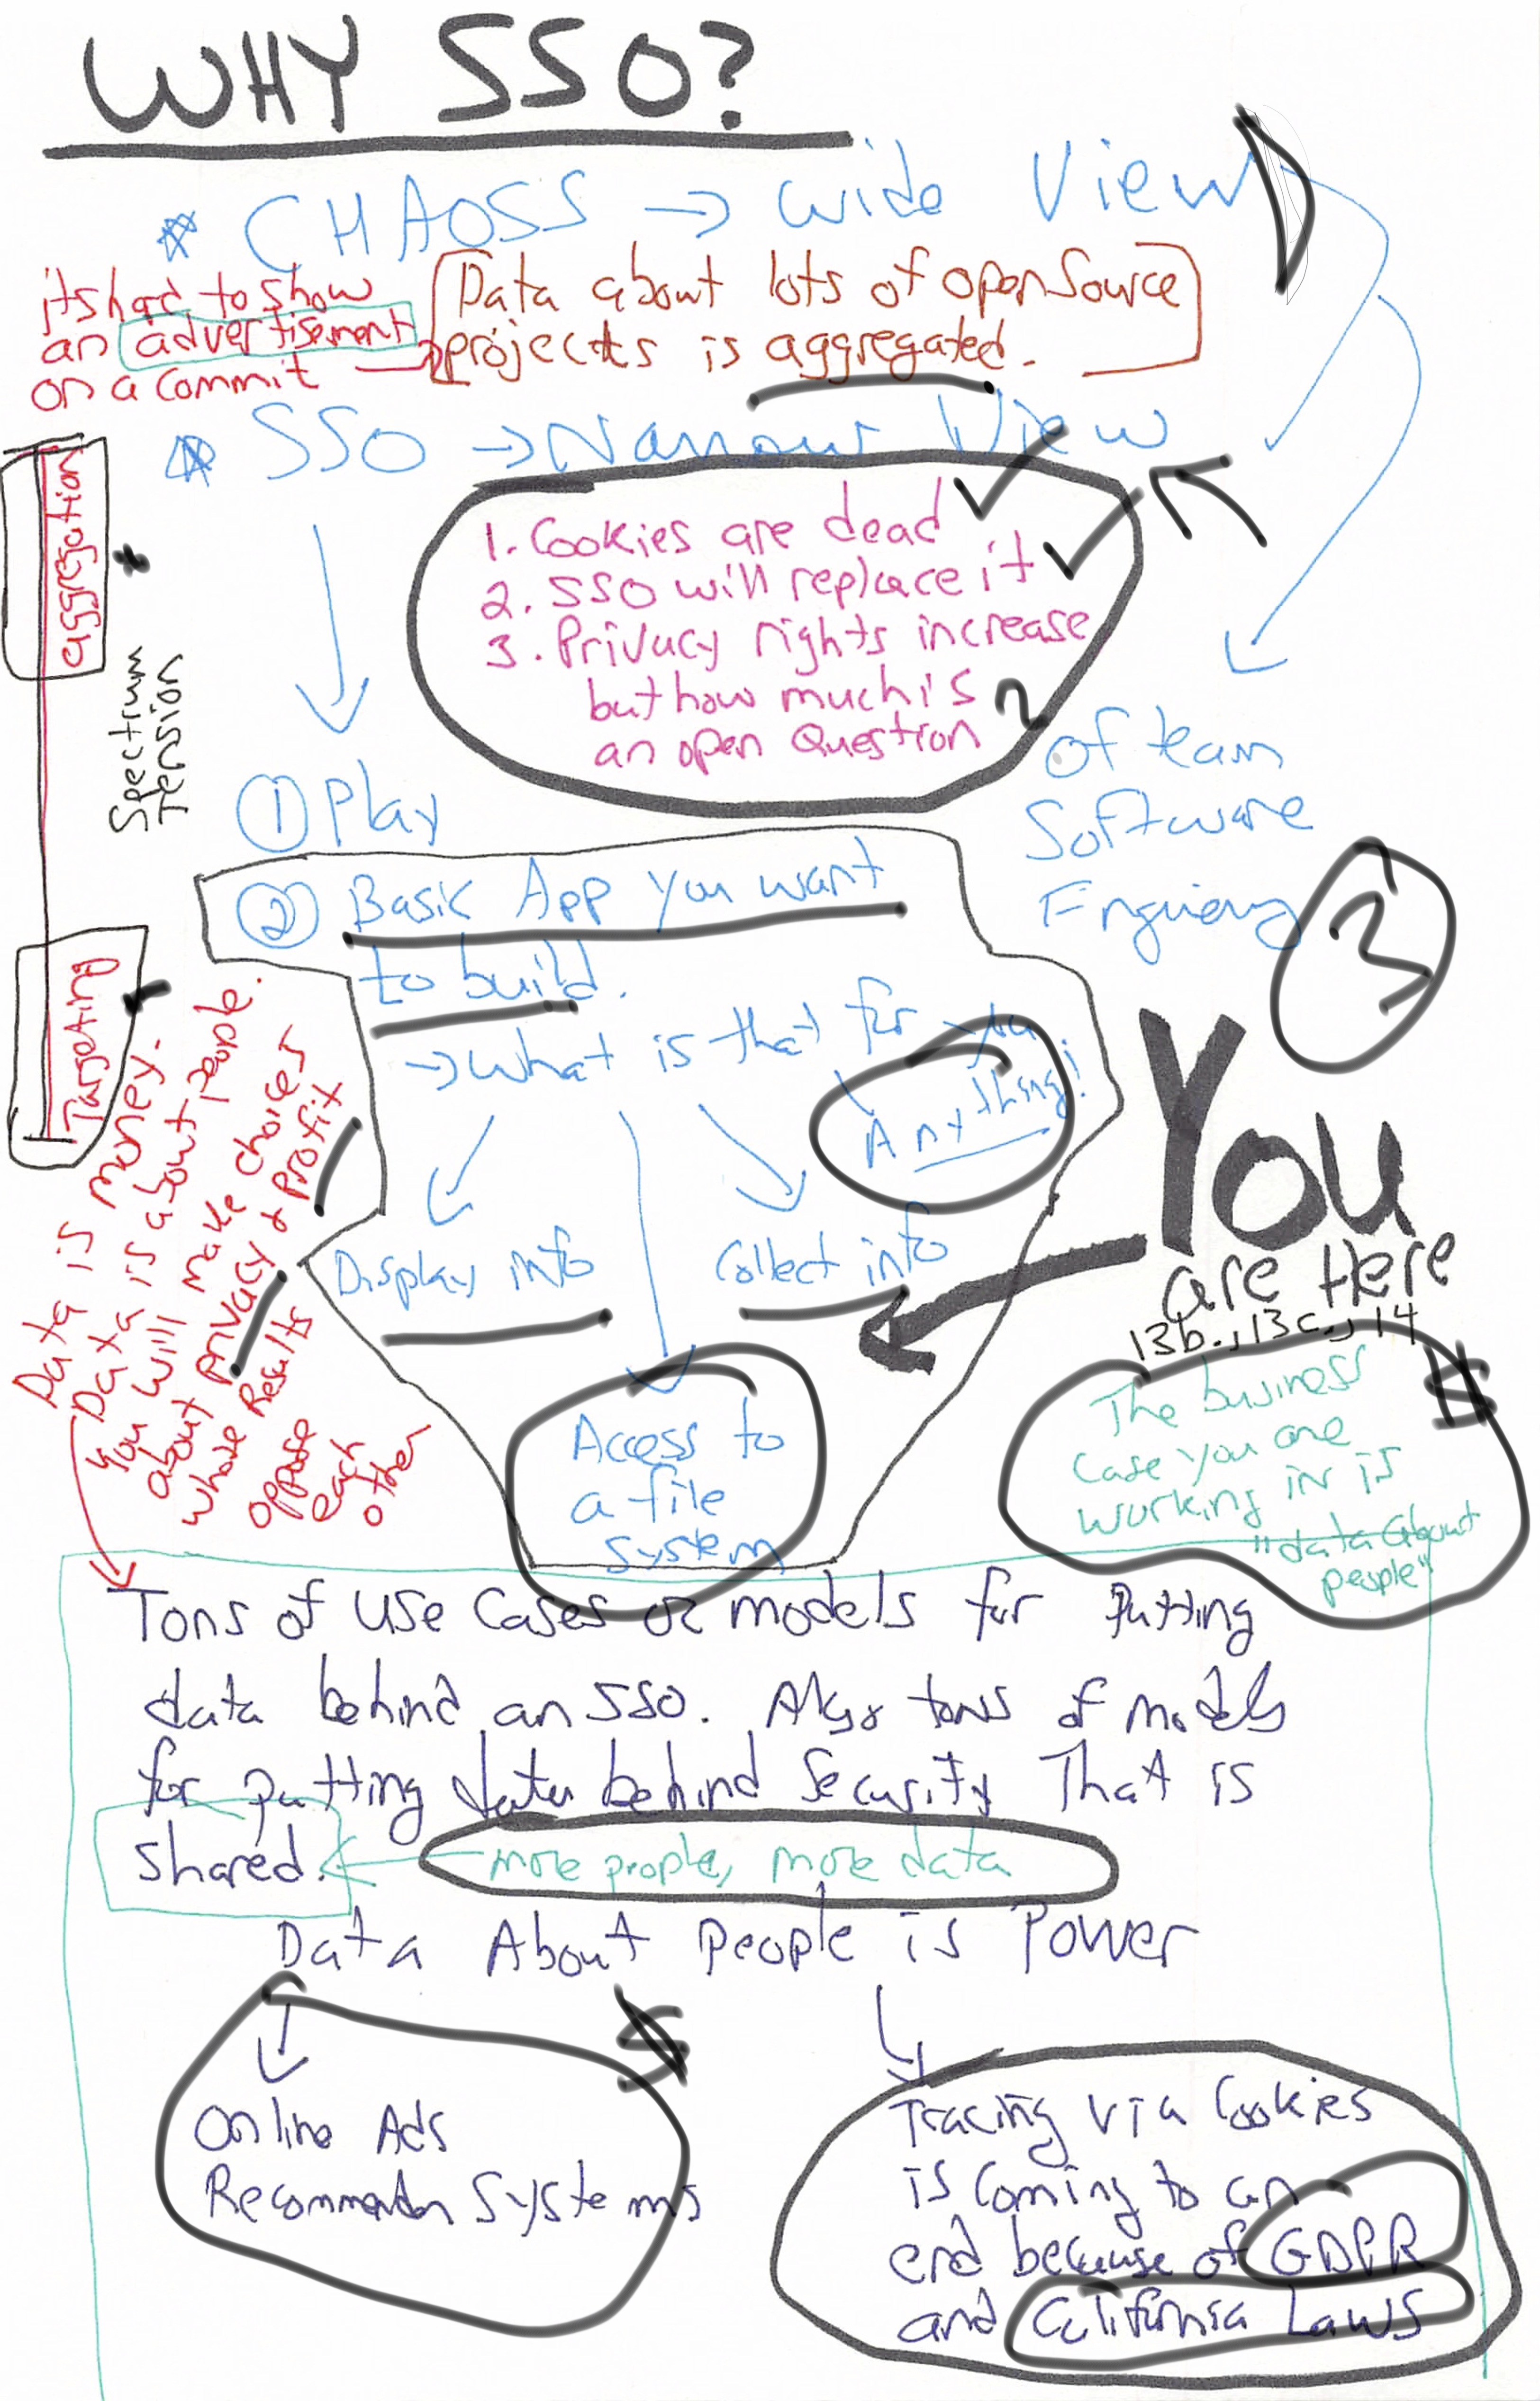 WHY SSO?
* CHAOSS → Wide View
its hard to show
an advertisement
on a commit
Data about lots of open Source
projects is aggregated.
* SSO → Narrow View
1. Cookies are dead
2. SSO will replace it
3. Privacy rights increase
but how much is
an open Question
aggregation
Spectrum
Tension
Targeting
of team
Software
① Play
② Basic App You want
to build.
→ What is that for you
Anything!
Display info
Collect info
Access to
a file
system
You
are Here
13b., 13c., 14
The business
Case you are
working in is
"data about
people"
$
Data is money.
Data is about people.
you will make choices
about privacy & profit
whose Results
oppose
each
other
Tons of Use Cases or models for Putting
data behind an SSO. Also tons of models
for putting data behind Security That is
Shared.
more people, more data
Data About People is Power
$
Online Ads
Systems
Tracing via Cookies
is Coming to an
end because of GDPR
and California Laws